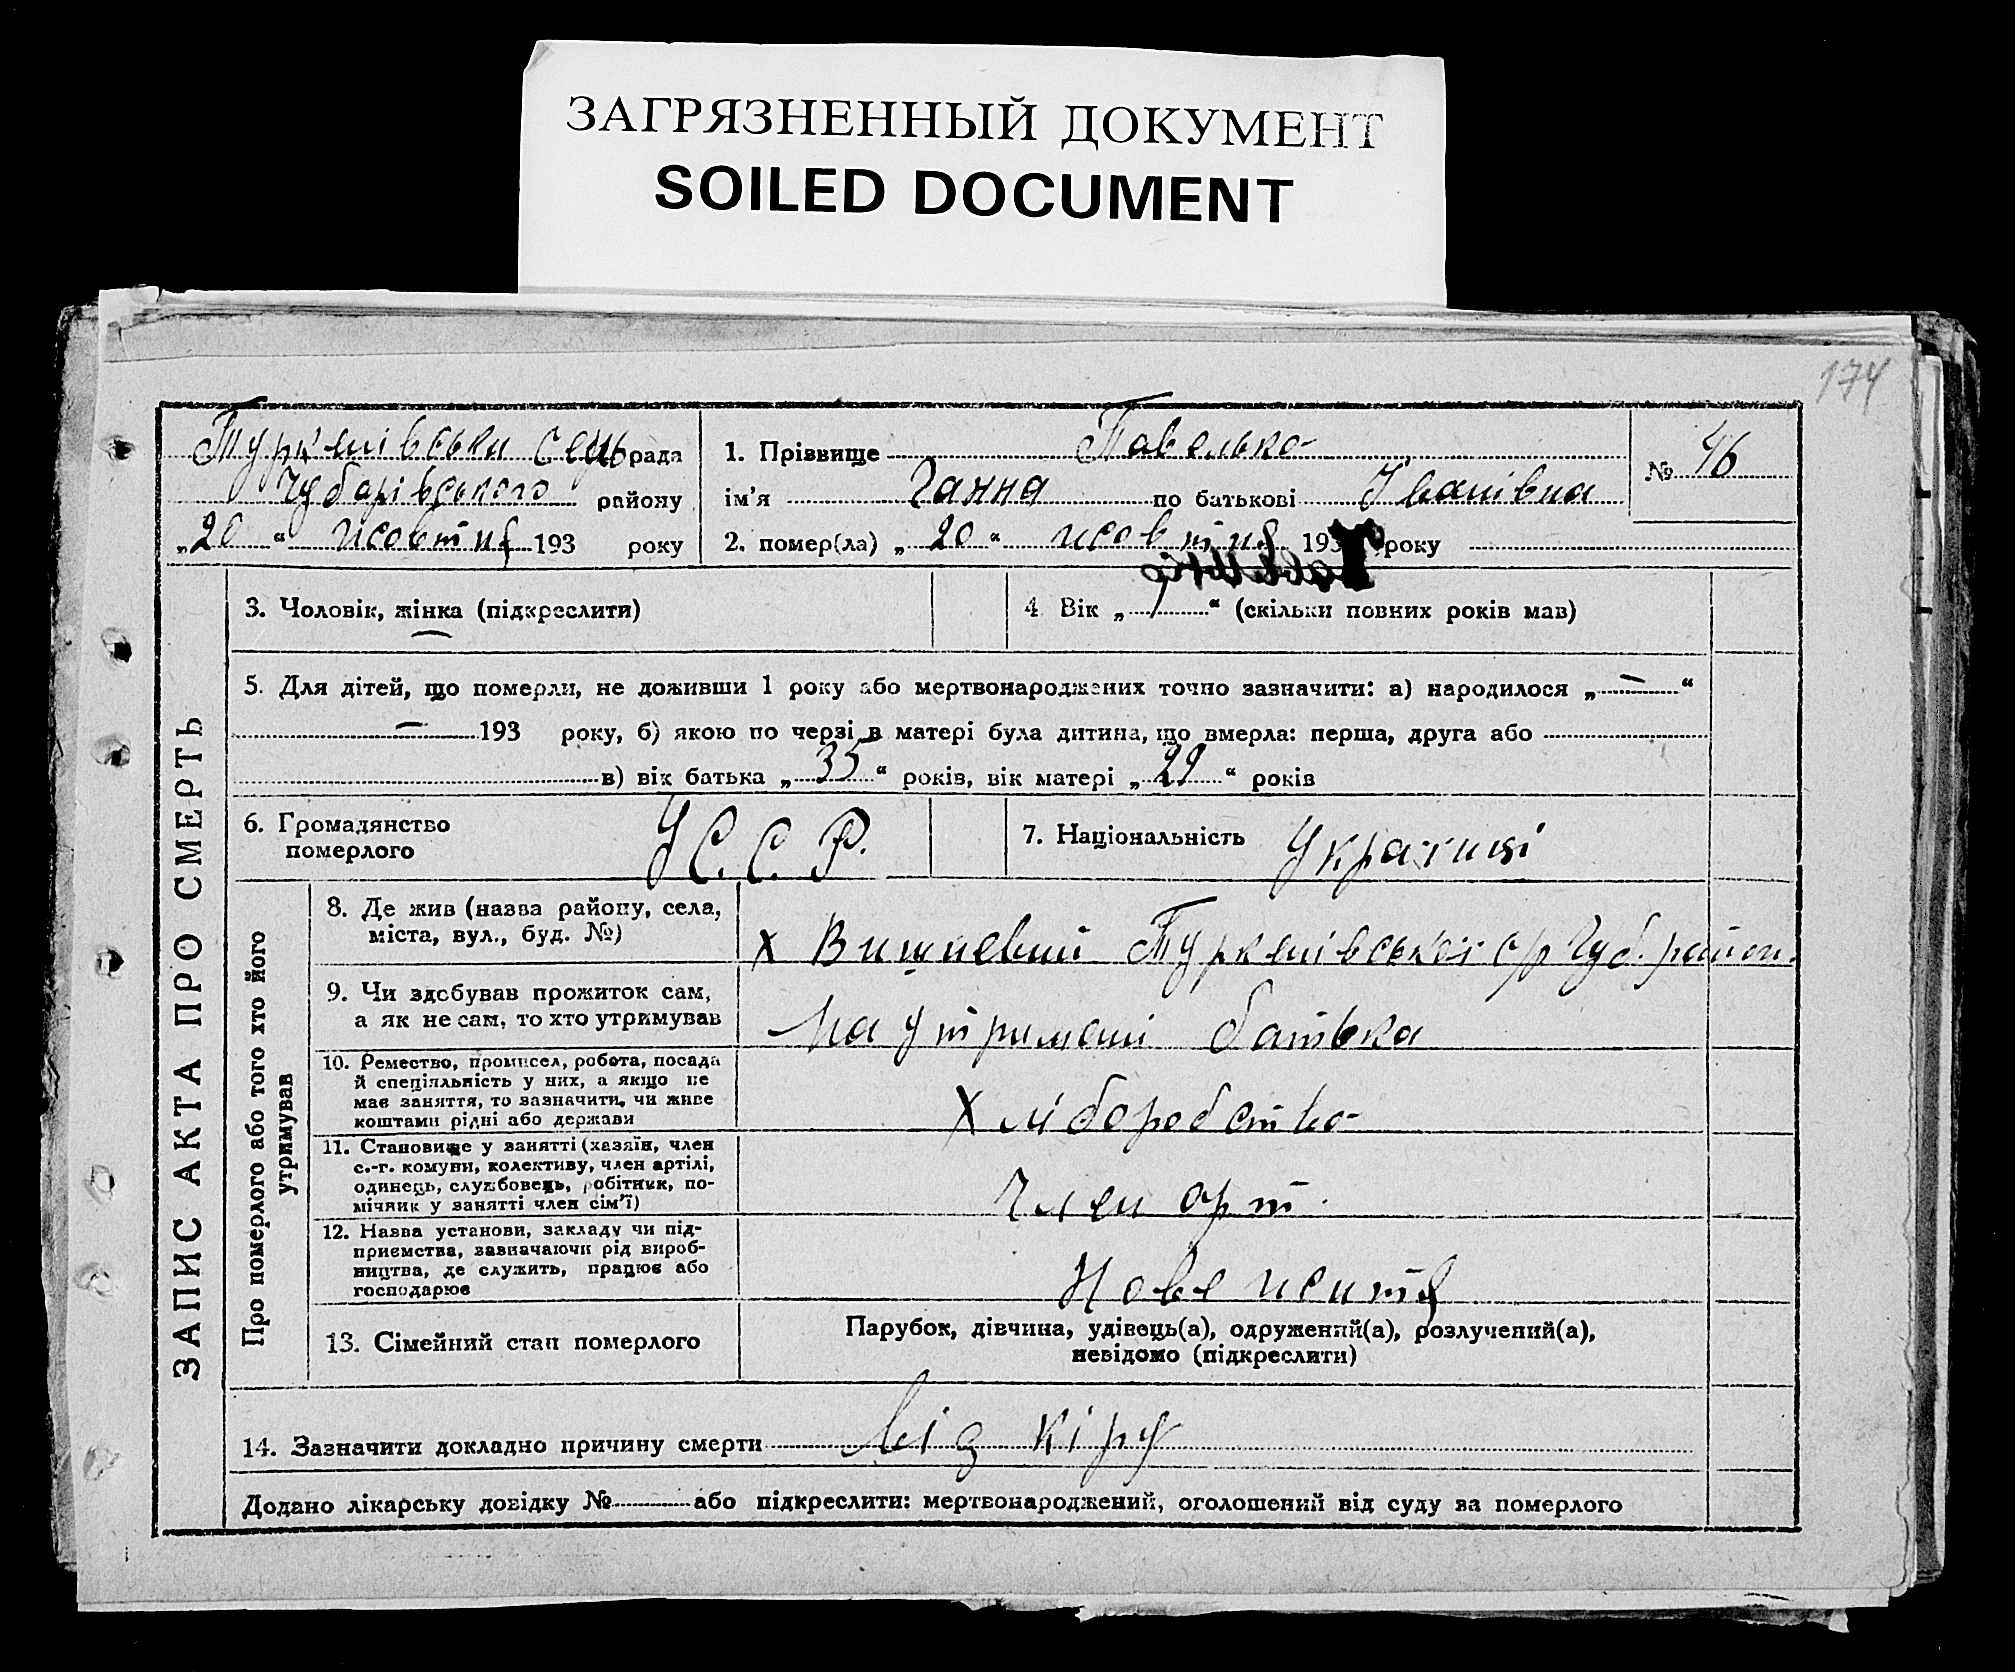 ЗАГРЯЗНЕННЫЙ ДОКУМЕНТ
SOILED DOCUMENT
174
Туркенівська сель рада
Чубарівського району
„20“ жовтня 193 року
1. Прізвище Павелько
ім'я Ганна по батькові Іванівна
2. помер(ла) „20“ жовтня 193 року
№ 46
ЗАПИС АКТА ПРО СМЕРТЬ
3. Чоловік, жінка (підкреслити)
4 Вік „1“ (скільки повних років мав)
5. Для дітей, що померли, не доживши 1 року або мертвонароджених точно зазначити: а) народилося „—“
— 193 року, б) якою по черзі в матері була дитина, що вмерла: перша, друга або
в) вік батька „35“ років, вік матері „29“ років
6. Громадянство
померлого
У С. С. Р.
7. Національність Україниі
Про померлого або того хто його
утримував
8. Де жив (назва району, села,
міста, вул., буд. №)
х Вишневий Туркенівської с/р Чуб. район.
9. Чи здобував прожиток сам,
а як не сам, то хто утримував
На утримані батька
10. Ремество, промисел, робота, посада
й спеціяльність у них, а якщо не
має заняття, то зазначити, чи живе
коштами рідні або держави
Хліборобство
11. Становище у занятті (хазяїн, член
с.-г. комуни, колективу, член артілі,
одинець, службовець, робітник, по-
мічник у занятті член сім'ї)
Член арт.
12. Назва установи, закладу чи під-
приємства, зазначаючи рід вироб-
ництва, де служить, працює або
господарює
Нове життя
13. Сімейний стан померлого
Парубок, дівчина, удівець(а), одружений(а), розлучений(а),
невідомо (підкреслити)
14. Зазначити докладно причину смерти від кіру
Додано лікарську довідку № або підкреслити: мертвонароджений, оголошений від суду за померлого